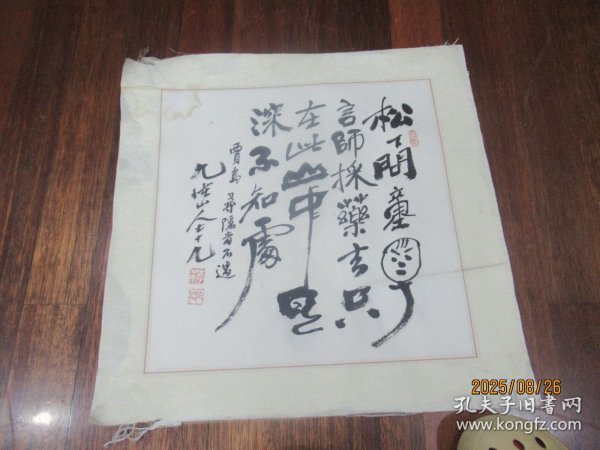 松下問童子
言師採藥去只
在此山中雲
深不知處
賈島尋隱者不遇
2025/08/26
孔夫子旧书网